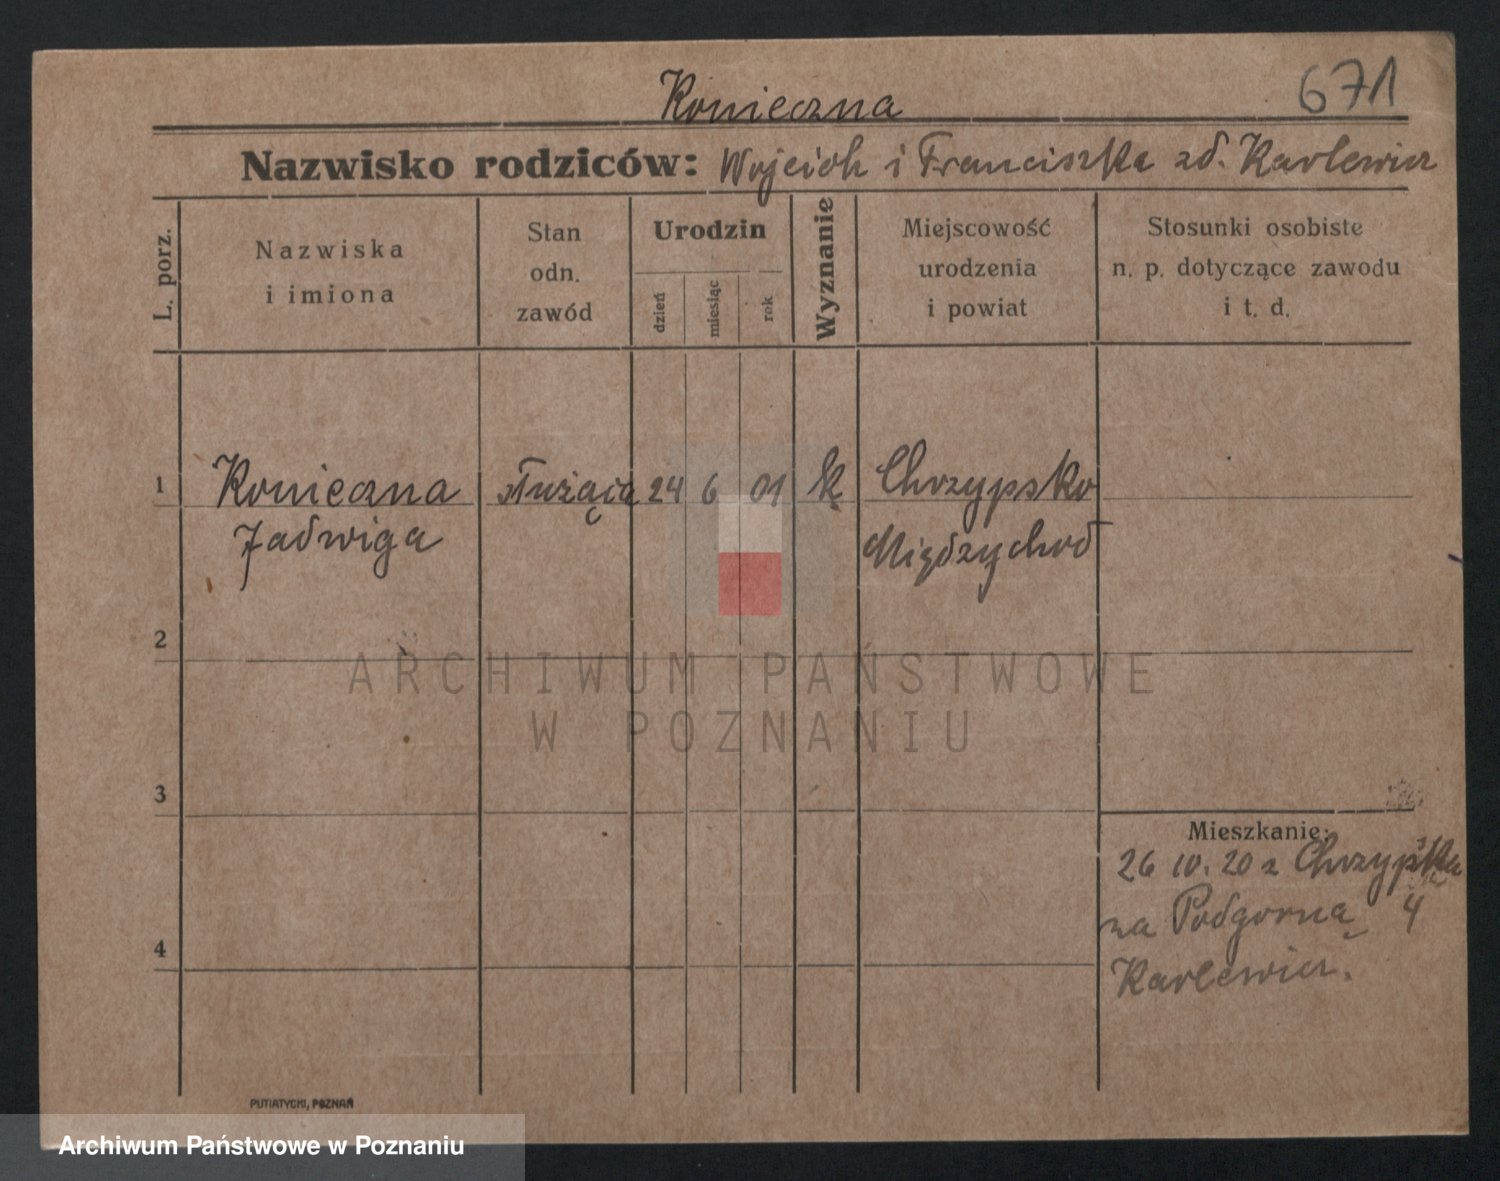 Konieczna
671
Nazwisko rodziców: Wojciech i Franciszka zd. Karlewicz
L. porz.
Nazwiska
i imiona
Stan
odn.
zawód
Urodzin
dzień
miesiąc
rok
Wyznanie
Miejscowość
urodzenia
i powiat
Stosunki osobiste
n. p. dotyczące zawodu
i t. d.
1 Konieczna służąca 24 6 01 k Chrzypsko
Jadwiga Międzychod
2
ARCHIWUM PAŃSTWOWE
W POZNANIU
3
Mieszkanie:
26 10. 20 z Chrzypska
na Podgorną 4
4
Karlewicz.
PUTIATYCKI, POZNAŃ
Archiwum Państwowe w Poznaniu